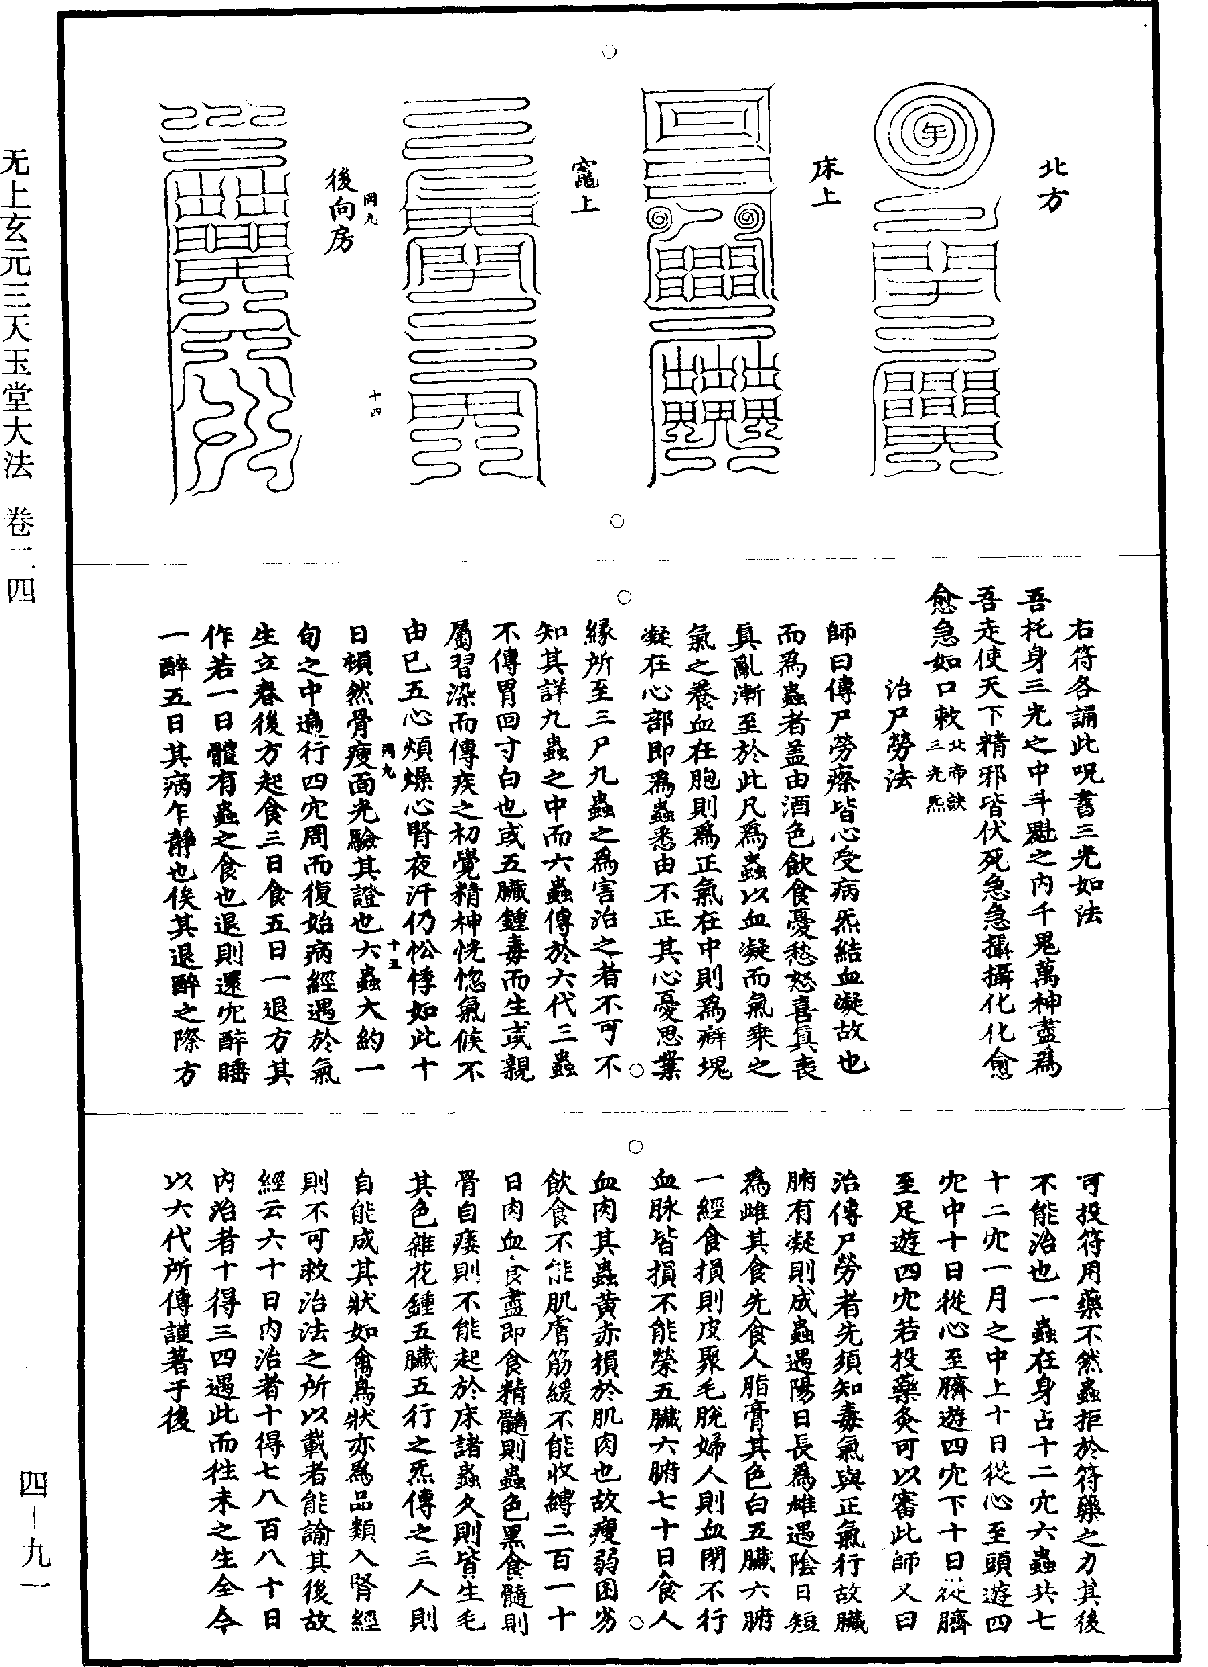 无上玄元三天玉堂大法 卷二四
四一九一
北方
床上
竈上
後向房
罔九
十四
右符各誦此呪書三光如法
吾托身三光之中斗魁之内千鬼萬神盡爲
吾走使天下精邪皆伏死急急攝攝化化愈
愈急如口敕北帝訣三光炁
治尸勞法
師曰傳尸勞瘵皆心受病炁結血凝故也
而爲蟲者盖由酒色飲食憂愁怒喜真喪
真亂漸至於此凡爲蟲以血凝而氣乗之
氣之養血在胞則爲正氣在中則爲癖塊
凝在心部即爲蟲悉由不正其心憂思業
縁所至三尸九蟲之爲害治之者不可不
知其詳九蟲之中而六蟲傳於六代三蟲
不傳胃回寸白也或五臟鍾毒而生或親
屬習染而傳疾之初覺精神恍惚氣候不
由已五心煩燥心腎夜汗仍忪悸如此十
日頓然骨瘦面光驗其證也六蟲大約一
罔九
十五
旬之中遍行四穴周而復始病經遇於氣
生立春後方起食三日食五日一退方其
作若一日體有蟲之食也退則還穴醉睡
一醉五日其病乍靜也俟其退醉之際方
可投符用藥不然蟲拒於符藥之力其後
不能治也一蟲在身占十二穴六蟲共七
十二穴一月之中上十日從心至頭遊四
穴中十日從心至臍遊四穴下十日從臍
至足遊四穴若投藥灸可以審此師又曰
治傳尸勞者先須知毒氣與正氣行故臟
腑有凝則成蟲遇陽日長爲雄遇陰日短
爲雌其食先食人脂膏其色白五臟六腑
一經食損則皮聚毛脫婦人則血閉不行
血脉皆損不能榮五臟六腑七十日食人
血肉其蟲黄赤損於肌肉也故瘦弱困劣
飲食不能肌膚筋緩不能收縛二百一十
日肉血食盡即食精髓則蟲色黑食髓則
骨自痿則不能起於床諸蟲久則皆生毛
其色雜花鍾五臟五行之炁傳之三人則
自能成其狀如禽鳥狀亦爲品類入腎經
則不可救治法之所以載者能諭其後故
經云六十日内治者十得七八百八十日
内治者十得三四過此而徃未之生全今
以六代所傳謹著于後